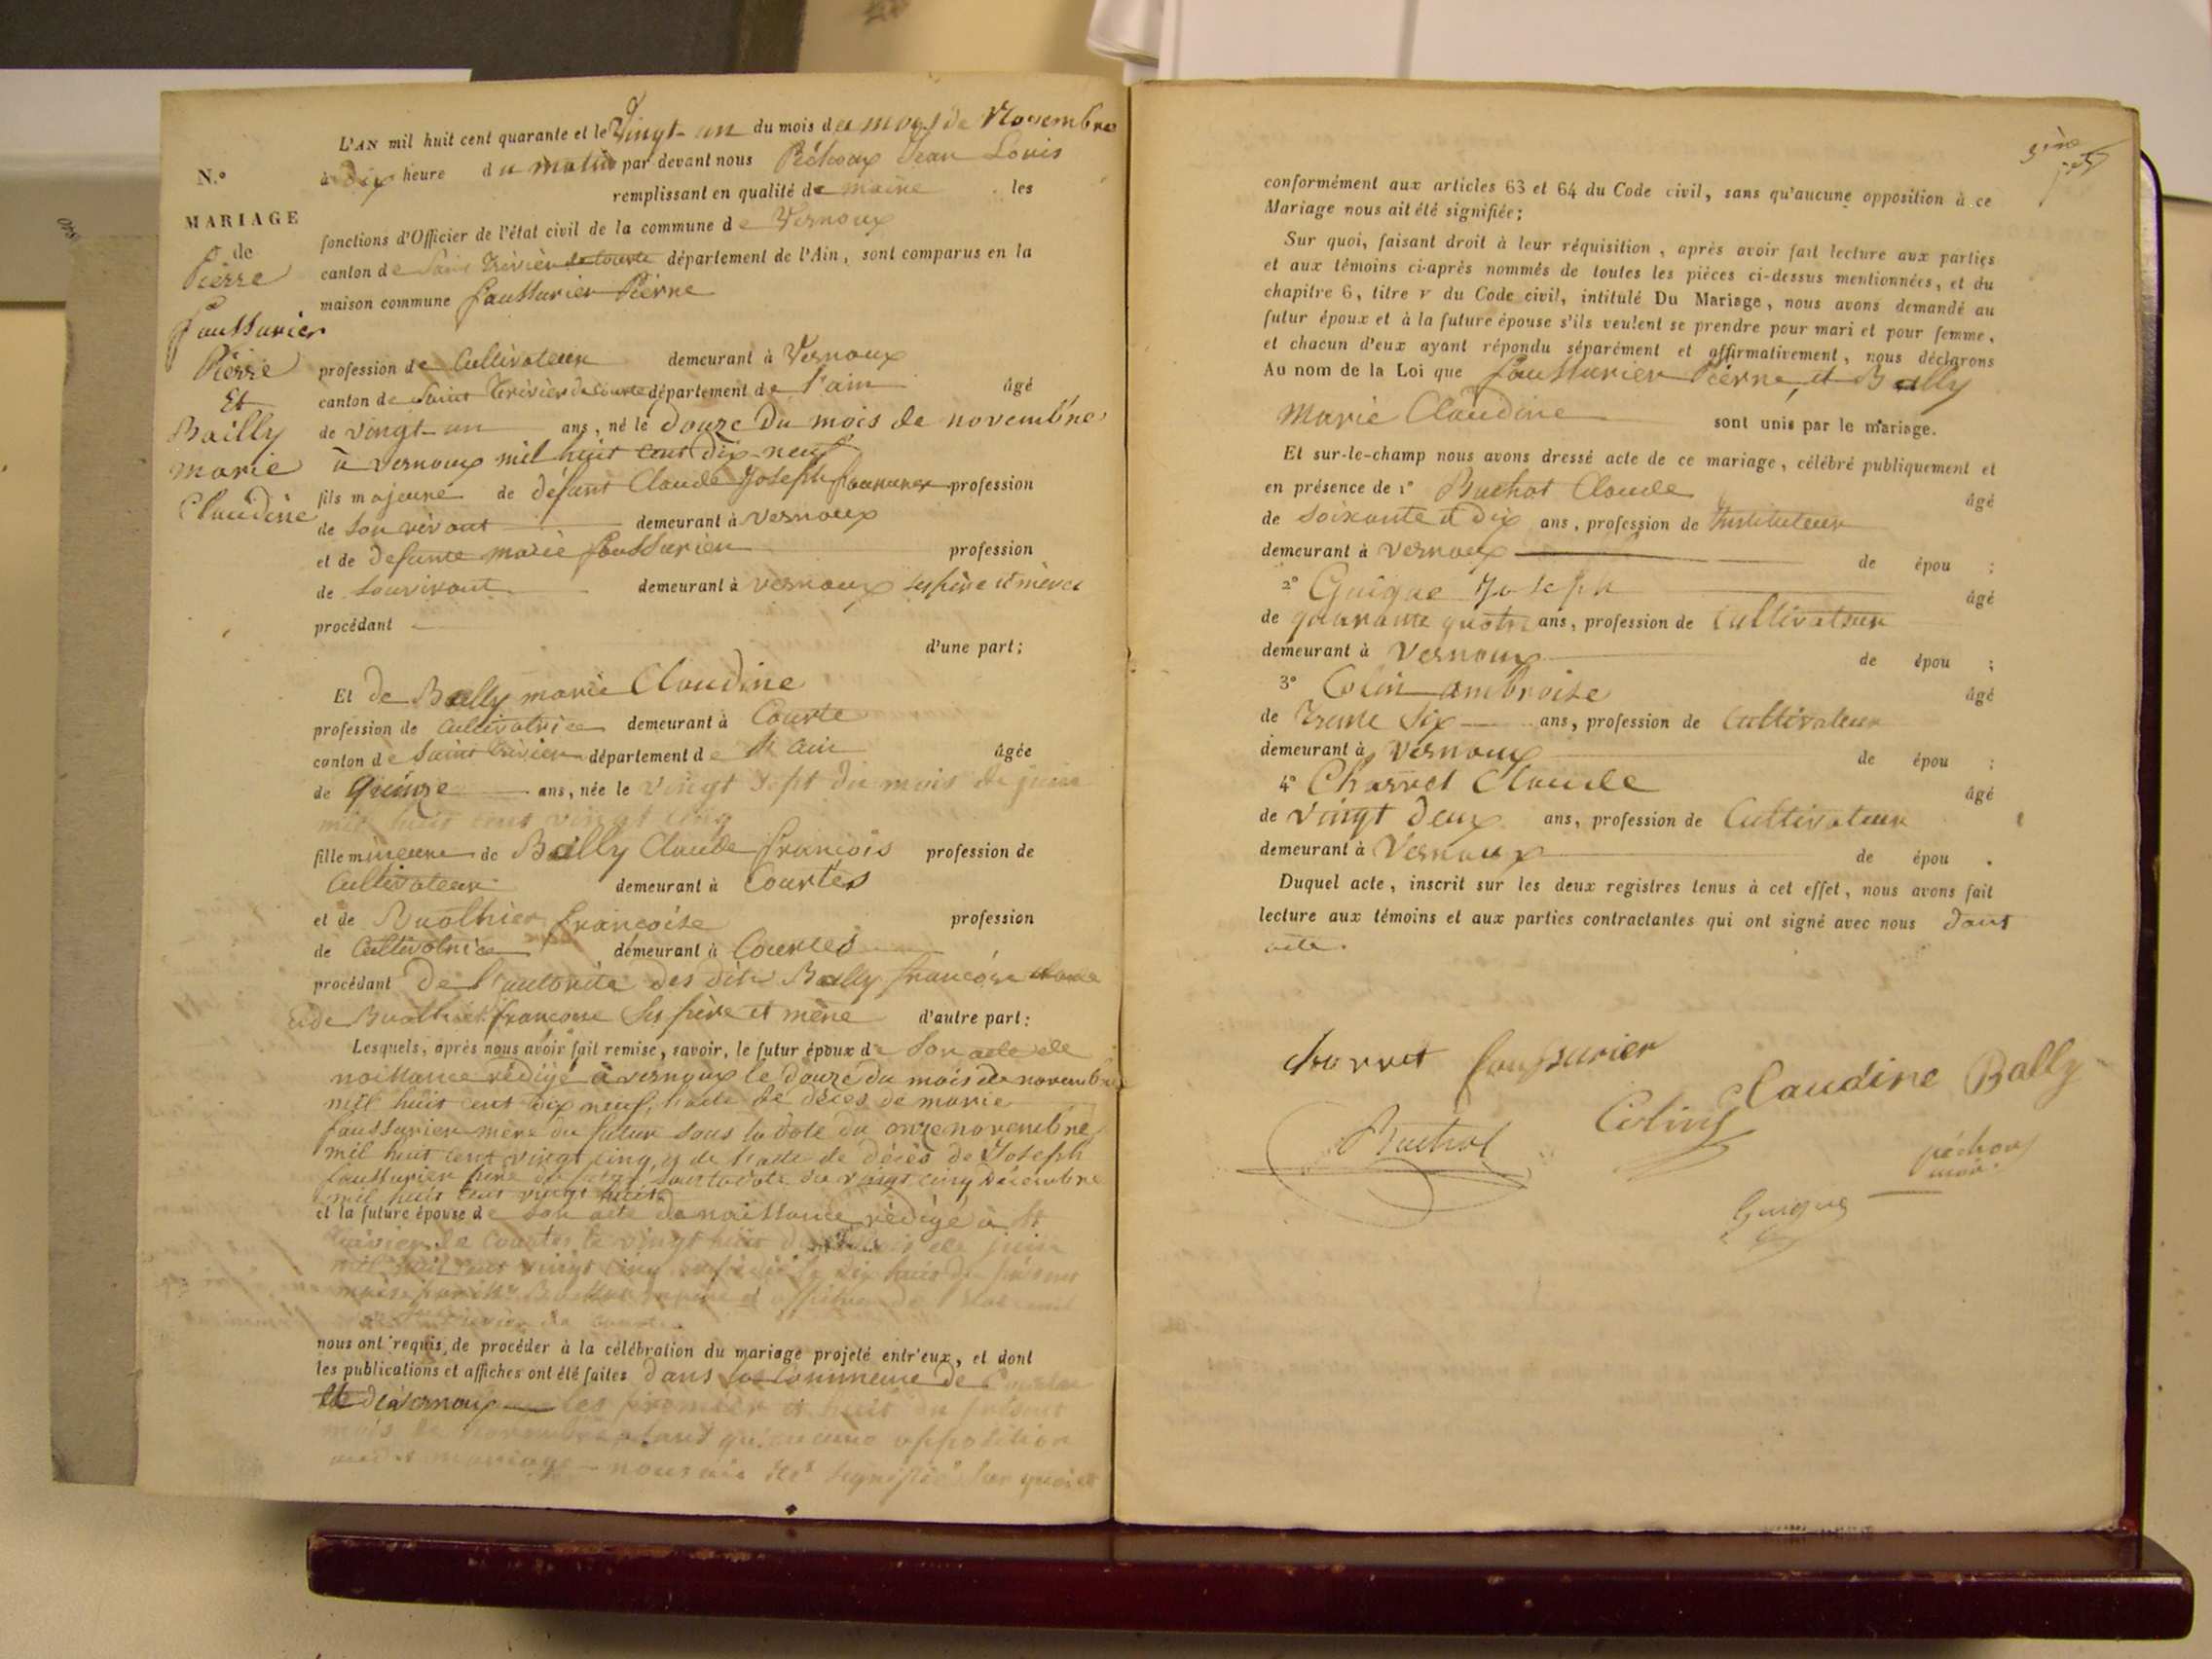 L'AN mil huit cent quarante et le Vingt-un du mois de Novembre
à Dix heure du matin par devant nous Péchoux Jean Louis
N.°
remplissant en qualité de maire les
MARIAGE
fonctions d'Officier de l'état civil de la commune de Vernoux
de
canton de Saint Trivier de Courte département de l'Ain, sont comparus en la
Pierre
maison commune faussurier Pierne
faussurier
Pierre
profession de Cultivateur demeurant à Vernoux
canton de Saint Trivier de Courte département de l'ain âgé
Et
Bailly
de vingt-un ans, né le douze Du mois de novembre
marie
à vernoux mil huit cent Dix-neuf
Claudine
fils majeure de défunt Claude Joseph faussurier profession
de Son vivant demeurant à vernoux
et de defunte marie faussurier profession
de Sonvivant demeurant à vernoux ses père et mère
procédant
d'une part;
Et de Bally marie Claudine
profession de cultivatrice demeurant à Courte
canton de Saint Trivier département de l'ain âgée
de Quinze ans, née le vingt sept du mois de juin
mil huit cent vingt cinq
fille mineure de Bailly Claude françois profession de
Cultivateur demeurant à Courtes
et de Buathier françoise profession
de Cultivatrice demeurant à Courtes
procédant De l'autorité des dits Bally françois Claude
et de Buathier françoise Ses père et mère d'autre part:
Lesquels, après nous avoir fait remise, savoir, le futur époux de Son acte de
naissance rédigé à vernoux le douze du mois de novembre
mil huit cent dix neuf, l'acte de décès de marie
faussurier mère du futur sous la date du onze novembre
mil huit cent vingt cinq, et de l'acte de décès de Joseph
faussurier père du futur sous la date du vingt cinq Décembre
mil huit cent vingt huit
et la future épouse de son acte de naissance rédigé à St
Trivier de Courtes le vingt huit du mois de juin
mil huit cent vingt cinq dix huit du présent
nous ont requis, de procéder à la célébration du mariage projeté entr'eux, et dont
les publications et affiches ont été faites Dans la Commune de Courtes
et de vernoux les premier et huit du présent
mois de novembre qu'aucune opposition
mariage nous ait été signifié Sur quoi
conformément aux articles 63 et 64 du Code civil, sans qu'aucune opposition à ce
Mariage nous ait été signifiée;
Sur quoi, faisant droit à leur réquisition, après avoir fait lecture aux parties
et aux témoins ci-après nommés de toutes les pièces ci-dessus mentionnées, et du
chapitre 6, titre v du Code civil, intitulé Du Mariage, nous avons demandé au
futur époux et à la future épouse s'ils veulent se prendre pour mari et pour femme,
et chacun d'eux ayant répondu séparément et affirmativement, nous déclarons
Au nom de la Loi que faussurier Pierne et Bally
Marie Claudine sont unis par le mariage.
Et sur-le-champ nous avons dressé acte de ce mariage, célébré publiquement et
en présence de 1° Buchot Claude âgé
de Soixante et Dix ans, profession de Instituteur
demeurant à vernoux de épou ;
2° Guigue Joseph âgé
de quarante quatre ans, profession de Cultivateur
demeurant à Vernoux de épou ;
3° Colin ambroise âgé
de Trente Six ans, profession de Cultivateur
demeurant à Vernoux de épou ;
4° Charvet Claude âgé
de Vingt Deux ans, profession de Cultivateur
demeurant à Vernoux de épou .
Duquel acte, inscrit sur les deux registres tenus à cet effet, nous avons fait
lecture aux témoins et aux parties contractantes qui ont signé avec nous dont
acte.
Charvet faussurier
Claudine Bally
Colin
Buchot
péchoux
maire
Guigue